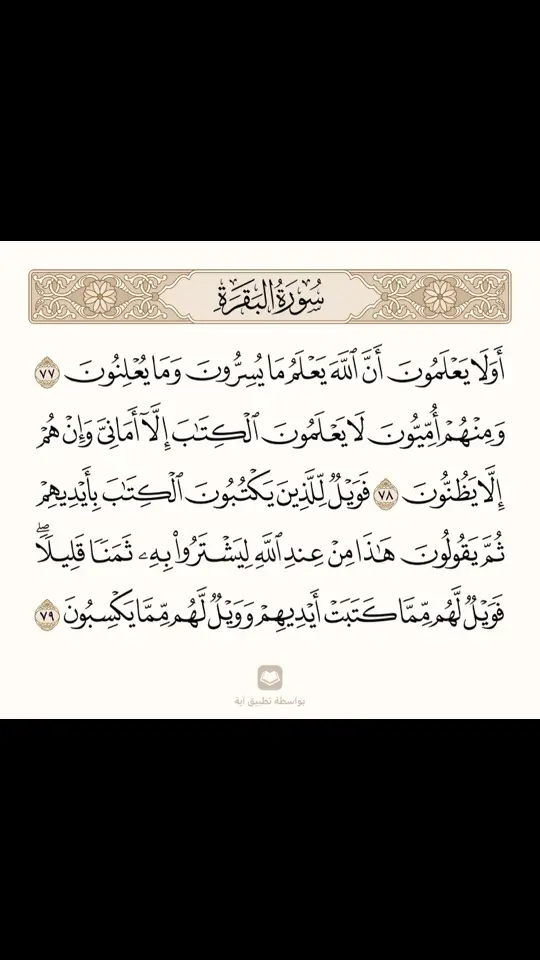 سُورَةُ البَقَرَةِ
أَوَلَا يَعْلَمُونَ أَنَّ ٱللَّهَ يَعْلَمُ مَا يُسِرُّونَ وَمَا يُعْلِنُونَ ٧٧
وَمِنْهُمْ أُمِّيُّونَ لَا يَعْلَمُونَ ٱلْكِتَٰبَ إِلَّآ أَمَانِىَّ وَإِنْ هُمْ
إِلَّا يَظُنُّونَ ٧٨ فَوَيْلٌ لِّلَّذِينَ يَكْتُبُونَ ٱلْكِتَٰبَ بِأَيْدِيهِمْ
ثُمَّ يَقُولُونَ هَٰذَا مِنْ عِندِ ٱللَّهِ لِيَشْتَرُوا۟ بِهِۦ ثَمَنًا قَلِيلًا ۖ
فَوَيْلٌ لَّهُم مِّمَّا كَتَبَتْ أَيْدِيهِمْ وَوَيْلٌ لَّهُم مِّمَّا يَكْسِبُونَ ٧٩
بواسطة تطبيق آية